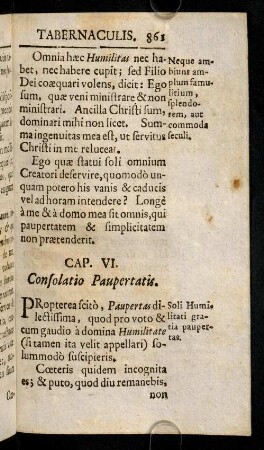 TABERNACULIS. 861
Omnia hæc Humilitas nec ha-
bet, nec habere cupit; sed Filio
Dei coæquari volens, dicit: Ego
sum, quæ veni ministrare & non
ministrari. Ancilla Christi sum,
dominari mihi non licet. Sum-
ma ingenuitas mea est, ut servitus
Christi in me reluceat.
Neque am-
bitum am-
plum famu-
litium,
splendo-
rem, aut
commoda
seculi.
Ego quæ statui soli omnium
Creatori deservire, quomodò un-
quam potero his vanis & caducis
vel ad horam intendere? Longè
à me & à domo mea sit omnis, qui
paupertatem & simplicitatem
non prætenderit.
CAP. VI.
Consolatio Paupertatis.
PRopterea scitò, Paupertas di-
lectissima, quod pro voto &
cum gaudio à domina Humilitate
(si tamen ita velit appellari) so-
lummodò suscipieris.
Soli Humi-
litati gra-
tia pauper-
tas.
Cœteris quidem incognita
es; & puto, quod diu remanebis,
non